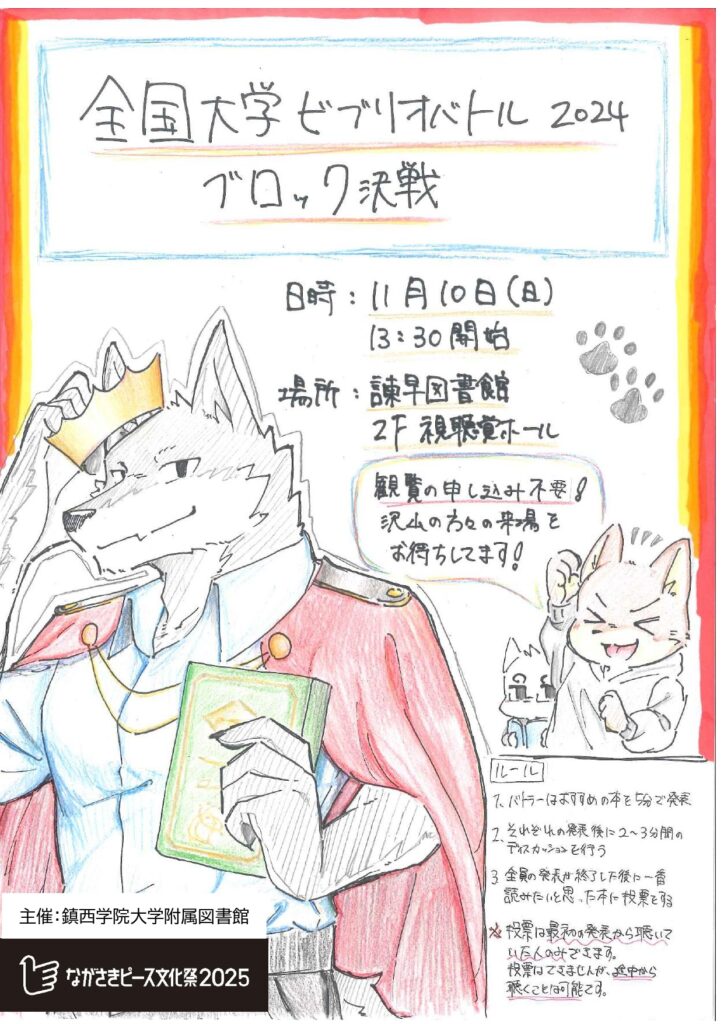 全国大学ビブリオバトル 2024
ブロック決戦
日時：11月10日(日)
13：30開始
場所：諫早図書館
2F 視聴覚ホール
観覧の申し込み不要！
沢山の方々の来場を
お待ちしてます！
ルール
1. バトラーはおすすめの本を5分で発表
2. それぞれの発表後に2～3分間の
ディスカッションを行う
3. 全員の発表が終了した後に一番
読みたいと思った本に投票をする
※投票は最初の発表から聴いて
いた人のみできます。
投票はできませんが、途中から
聴くことは可能です。
主催：鎮西学院大学附属図書館
ながさきピース文化祭2025